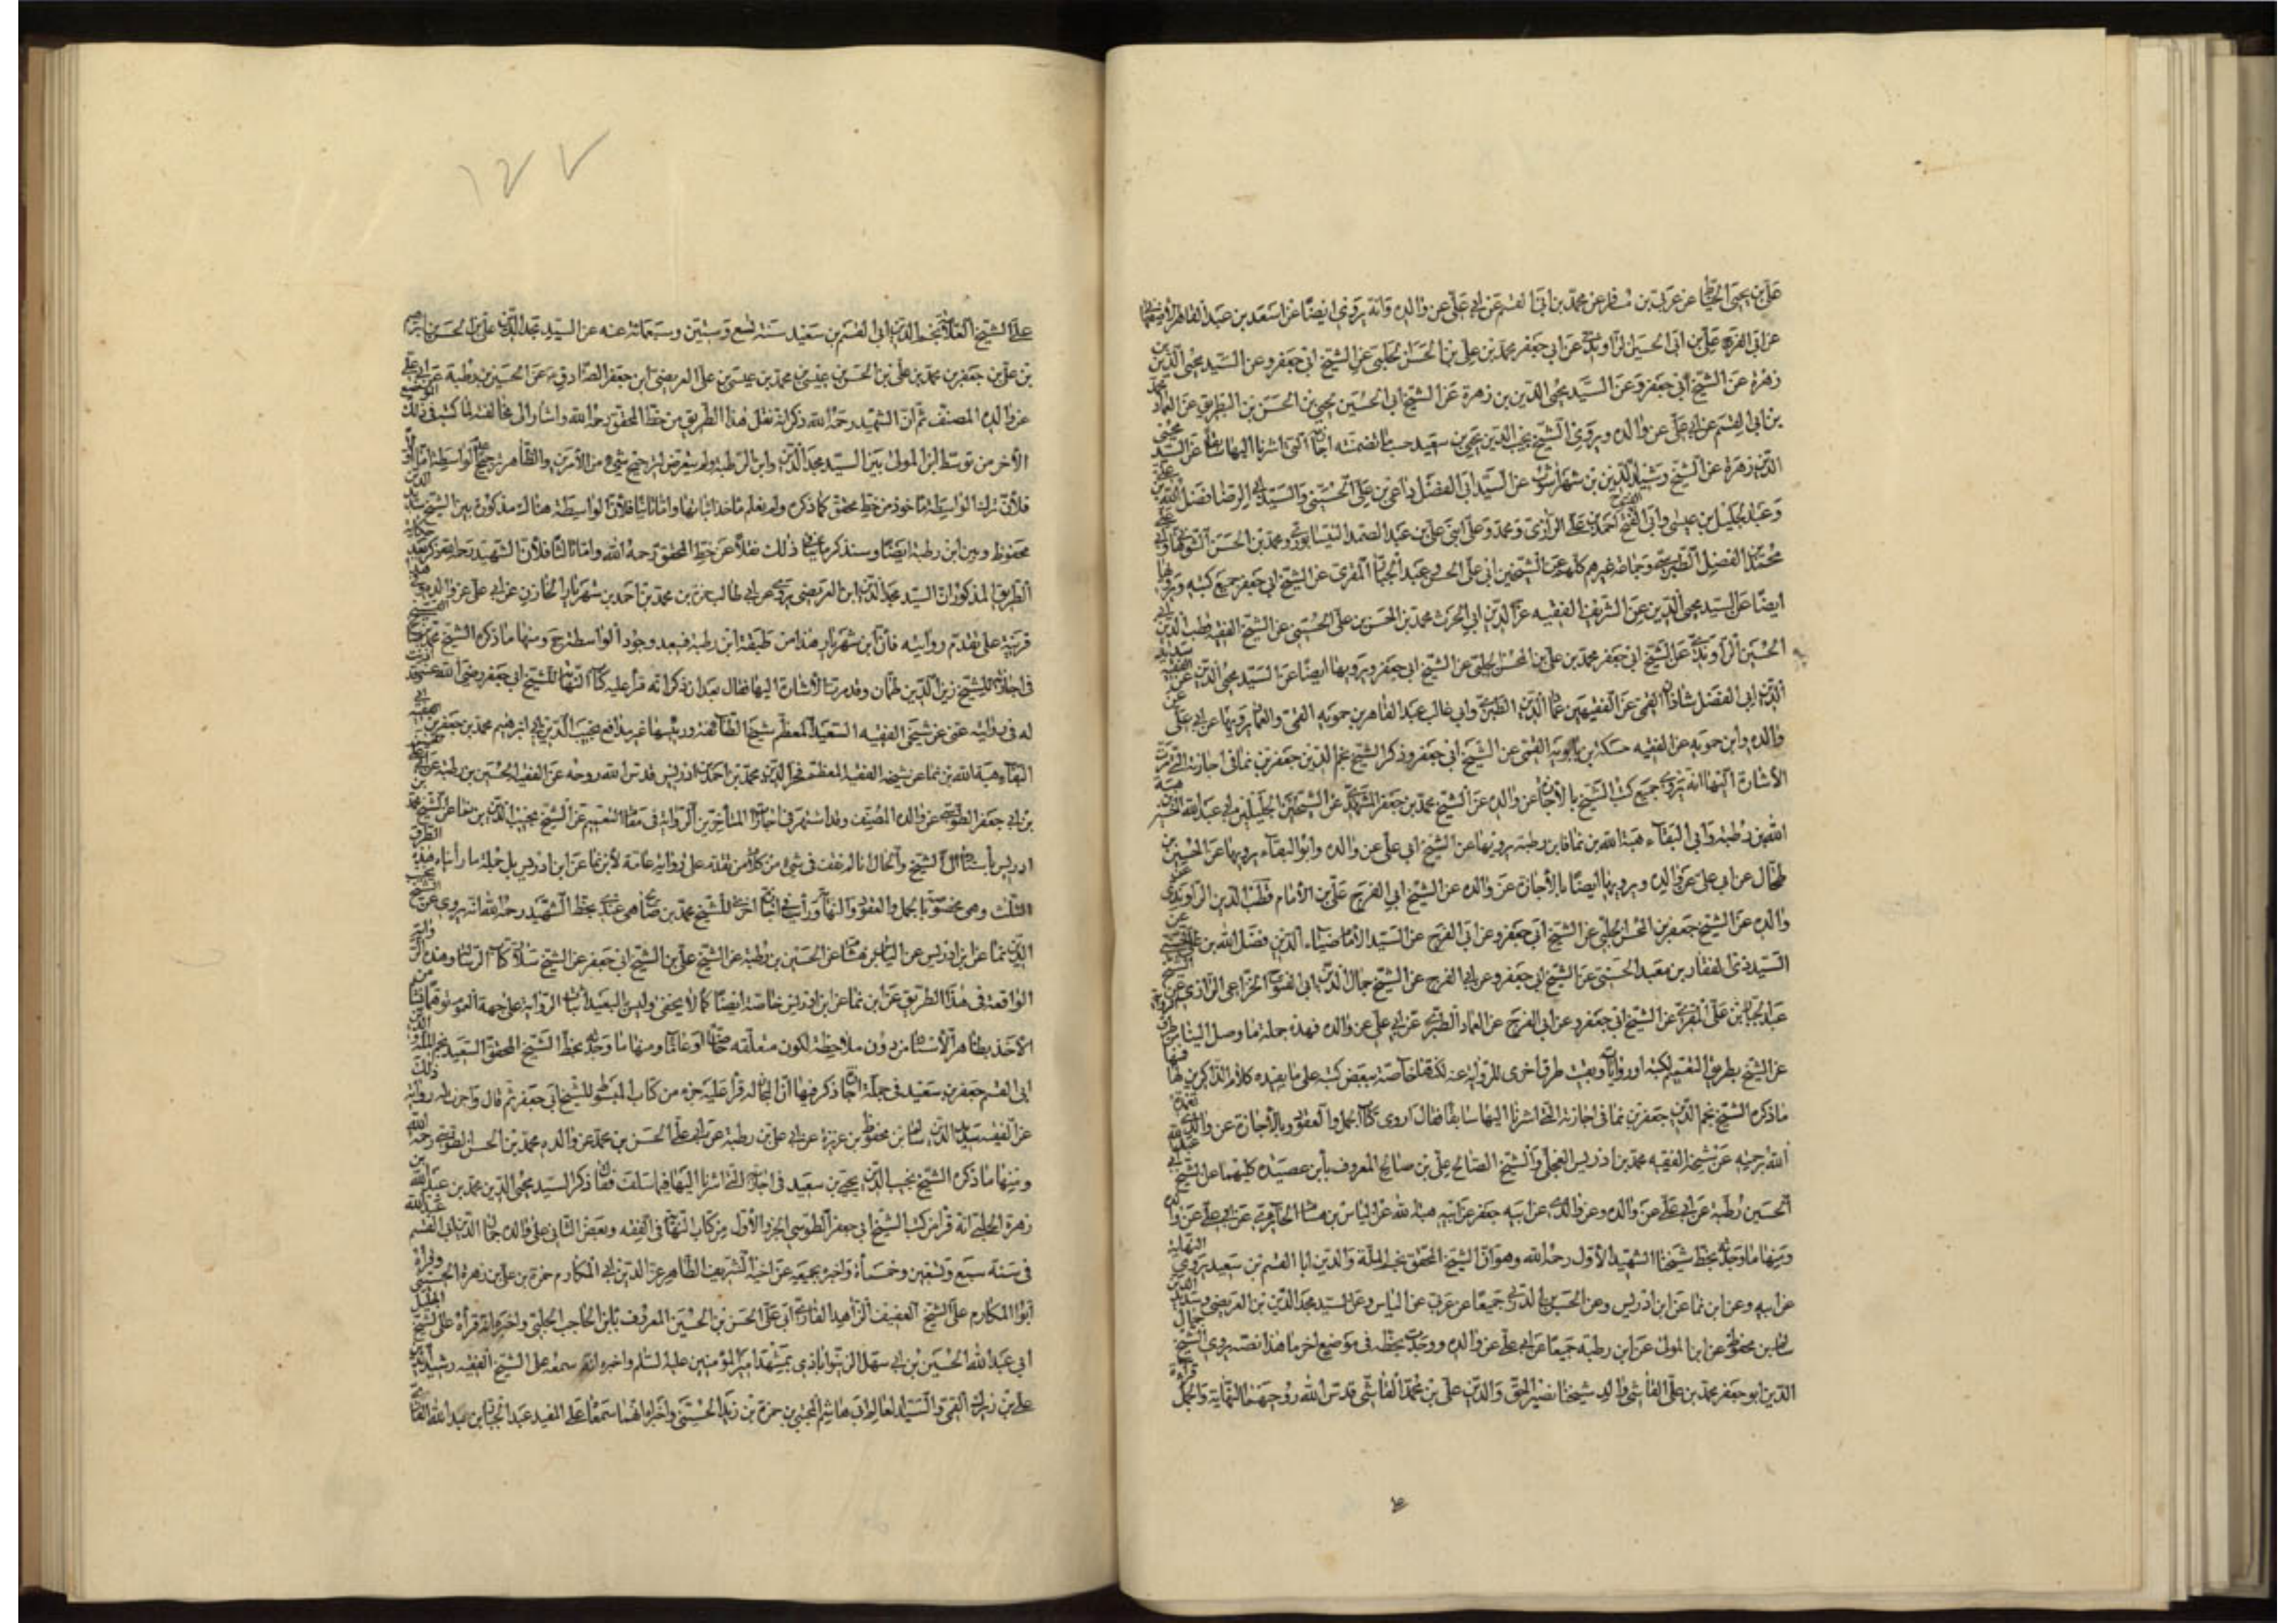 علي بن يحيى الخياط عن عربي بن مسافر عن محمد بن أبي القسم عن أبي علي عن والده وانه يروي ايضا عن اسعد بن عبد القاهر الأصفهاني
عن ابي الفرج علي بن ابي الحسين الراوندي عن ابي جعفر محمد بن علي بن الحسن الحلبي عن الشيخ ابي جعفر وعن السيد محيي الدين بن
زهرة عن الشيخ أبي جعفر وعن السيد محيي الدين بن زهرة عن الشيخ ابي الحسين يحيى بن الحسن بن البطريق عن العماد محمد
بن ابي القسم عن ابي علي عن والده ويروي الشيخ نجيب الدين يحيى بن سعيد حسب ما تضمنته اجازته التي اشرنا اليها سابقا عن السيد محيي
الدين زهرة عن الشيخ رشيد الدين بن شهرآشوب عن السيد ابي الفضل داعي بن علي الحسيني والسيد ابي الرضا فضل الله بن علي
وعبد الجليل بن عيسى وأبي الفتوح احمد بن علي الرازي ومحمد وعلي ابني علي بن عبد الصمد النيسابوري ومحمد بن الحسن الشوهاني
محمد بن الفضل الطبرسي وجماعة غيرهم كلهم عن الشيخين ابي علي الحسن وعبد الجبار المقري عن الشيخ ابي جعفر جميع كتبه ويرويها
ايضا عن السيد محيي الدين عن الشريف الفقيه عز الدين ابي الحرث محمد بن الحسن بن علي الحسيني عن الشيخ الفقيه قطب الدين
الحسين الراوندي عن الشيخ ابي جعفر محمد بن علي بن المحسن الحلبي عن الشيخ ابي جعفر ويرويها ايضا عن السيد محيي الدين عن الفقيه سديد
الدين ابي الفضل شاذان القمي عن الفقيهين عماد الدين الطبري وابي غالب عبد القاهر بن حمويه القمي والعماد يرويها عن ابي علي عن
والده وابن حمويه عن الفقيه حسكة بن بابويه القمي عن الشيخ ابي جعفر وذكر الشيخ نجم الدين جعفر بن نما في اجازته التي مرت
الأشارة اليها انه يروي جميع كتب الشيخ بالأجازة عن والده عن الشيخ محمد بن جعفر المشهدي عن الشيخين الجليلين ابي عبد الله الحسين بن هبة
الله بن رطبة وأبي البقاء هبة الله بن نما فابن رطبة يرويها عن الشيخ ابي علي عن والده وابو البقاء يرويها عن الحسين بن
طحال عن ابي علي عن والده ويرويها ايضا بالأجازة عن والده عن الشيخ ابي الفرج علي بن الامام قطب الدين الراوندي عن
والده عن الشيخ جعفر بن المحسن الحلبي عن الشيخ أبي جعفر وعن ابي الفرج عن السيد الأمام ضياء الدين فضل الله بن علي الحسني عن
السيد ذي الفقار بن معبد الحسني عن الشيخ ابي جعفر وعن ابي الفرج عن الشيخ جمال الدين ابي الفتوح الخزاعي الرازي عن الشيخ
عبد الجبار بن علي المقري عن الشيخ ابي جعفر وعن أبي الفرج عن العماد الطبري عن ابي علي عن والده فهذه جملة ما وصل الينا من طرق الرواية
عن الشيخ بطريق التعميم لكتبه او رواياته وبقيت طرق اخرى للرواية عنه لكنها خاصة ببعض كتبه على ما يفيده كلام الذاكرين لها فمنها
ما ذكره الشيخ نجم الدين جعفر بن نما في اجازته التي اشرنا اليها سابقا فقال اروي كتاب الجمل والعقود بالأجازة عن والدي تغمده
الله برحمته عن شيخه الفقيه محمد بن ادريس العجلي والشيخ الصالح علي بن صالح المعروف بأبن عصيده كليهما عن الشيخ ابي عبد الله
الحسين رطبة عن ابي علي عن والده وعن والدي عن ابيه جعفر عن ابيه هبة الله عن الياس بن هشام الحايري عن ابي علي عن والده
ومنها ما وجدته بخط شيخنا الشهيد الأول رحمه الله وهو ان الشيخ المحقق نجم الملة والدين ابا القسم بن سعيد يروي النهاية
عن ابيه وعن ابن نما عن ابن ادريس وعن الحسن بن الدربي جميعا عن عربي عن الياس وعن السيد مجد الدين بن العريضي وسديد الدين
سالم بن محفوظ عن ابن المولى عن ابن رطبة جميعا عن ابي علي عن والده ووجدت بخطه في موضع اخر ما هذا نصه يروي الشيخ جمال
الدين ابو جعفر محمد بن علي القاشي والد شيخنا نصير الحق والدين علي بن محمد القاشي قدس الله روحهما النهاية والجمل قراءة
١٢٧
على الشيخ العلامة نجم الدين ابي القسم بن سعيد سنة تسع وستين وسبعمائة عنه عن السيد مجد الدين علي بن الحسن بن ابراهيم
بن علي بن جعفر بن محمد بن علي بن الحسن بن عيسى بن محمد بن عيسى بن علي العريضي ابن جعفر الصادق ع عن الحسين بن رطبة عن ابي علي
عن والده المصنف ثم ان الشهيد رحمه الله ذكر انه نقل هذا الطريق من خط المحقق رحمه الله واشار الى مخالفته لما كتبه في ذلك الموضع
الأخر من توسط ابن المولى بين السيد مجد الدين وابن الرطبة ولم يتعرض لترجيح شيء من الأمرين والظاهر ترجيح الواسطة اما أولا
فلأن ترك الواسطة مأخوذ من خط محقق كما ذكره ولم يعلم مأخذ اثباتها واما ثانيا فلأن الواسطة هنالك مذكورة بين الشيخ سديد الدين
محفوظ وبين ابن رطبة ايضا وسنذكر ما ينافي ذلك نقلا عن خط المحقق رحمه الله واما ثالثا فلأن الشهيد رحمه الله ذكر بعد حكاية
الطريق المذكور ان السيد مجد الدين ابن العريضي يروي عن ابي طالب حمزة بن محمد بن احمد بن شهريار الخازن عن ابي علي عن والده
قرينة على تقدم روايته فان ابن شهريار هذا من طبقة ابن رطبة فيبعد وجود الواسطة ح ومنها ما ذكره الشيخ محمد بن صالح
في اجازته للشيخ زين الدين طمان وقد مرت الأشارة اليها فقال بعد ان ذكر انه قرأ عليه كتاب النهاية للشيخ ابي جعفر رضي الله عنه وقد اذنت
له في روايته عني عن شيخي الفقيه السعيد المعظم شيخ الطائفة ورئيسها غير مدافع نجيب الدين ابي ابرهيم محمد بن جعفر بن ابي
البقاء هبة الله بن نما عن شيخه الفقيه المعظم فخر الدين محمد بن احمد بن ادريس قدس الله روحه عن الفقيه الحسين بن رطبة عن ابي علي
بن ابي جعفر الطوسي عن والده المصنف وقد اشتهر في اجازات المتأخرين الرواية في مقام التعميم عن الشيخ نجيب الدين بن نما عن الشيخ محمد بن
ادريس بأسناده الى الشيخ والحال انا لم نقف في شيء من كلام من تقدمه على رواية عامة لأبن نما عن ابن ادريس بل جملة ما رأيناه هذه الطرق
الثلث وهي مخصوصة بالجمل والعقود والنهاية ورأيت في اجازة اخرى للشيخ محمد بن صالح هي عندي بخط الشهيد رحمه الله انه يروي عن الشيخ نجيب
الدين نما عن ابن ادريس عن الياس بن هشام عن الحسين بن رطبة عن الشيخ علي بن الشيخ ابي جعفر عن الشيخ سلار كتاب الرسالة
الواقعة في هذا الطريق عن ابن نما عن ابن ادريس خاصة ايضا كما لا يخفى وليس البعيد اثبات الرواية على جهة العموم توهما
الأخذ بظاهر الأسناد من دون ملاحظة لكون متعلقه خاصا او عاما ومنها ما وجدته بخط الشيخ المحقق السعيد نجم الملة والدين
ابي القسم جعفر بن سعيد في جملة اجازة ذكر فيها ان المجاز له قرأ عليه جزء من كتاب المبسوط للشيخ ابي جعفر ثم قال واجزت له رواية ذلك
عن الفقيه سديد الدين سالم بن محفوظ بن عزيزة عن ابي علي بن رطبة عن ابي علي الحسن بن محمد عن والده محمد بن الحسن الطوسي رحمه الله
ومنها ما ذكره الشيخ نجيب الدين يحيى بن سعيد في اجازته التي اشرنا اليها فيما سلف فقال ذكر السيد محيي الدين بن محمد بن عبد الله بن
زهرة الحلبي انه قرأ من كتب الشيخ ابي جعفر الطوسي الجزء الأول من كتاب النهاية في الفقه وبعض الثاني على والده جمال الدين ابي القسم عبد الله
في سنة سبع وتسعين وخمسمأة واخبره بجميعه عن اخيه الشريف الطاهر عز الدين ابي المكارم حمزة بن علي بن زهرة الحسيني وقراءة
ابو المكارم على الشيخ العفيف الزاهد القاري ابي علي الحسن بن الحسين المعروف بابن الحاجب الحلبي واخبره انه قرأه على الشيخ الجليل
ابي عبد الله الحسين بن ابي سهل الزينوابادي بمشهد امير المؤمنين عليه السلم واخبره انه سمعه على الشيخ الفقيه رشيد الدين
علي بن زيرك القمي والسيد العالم ابي هاشم المجتبى بن حمزة بن زيد الحسيني واخبراه انهما سمعاه على المفيد عبد الجبار بن عبد الله القاري